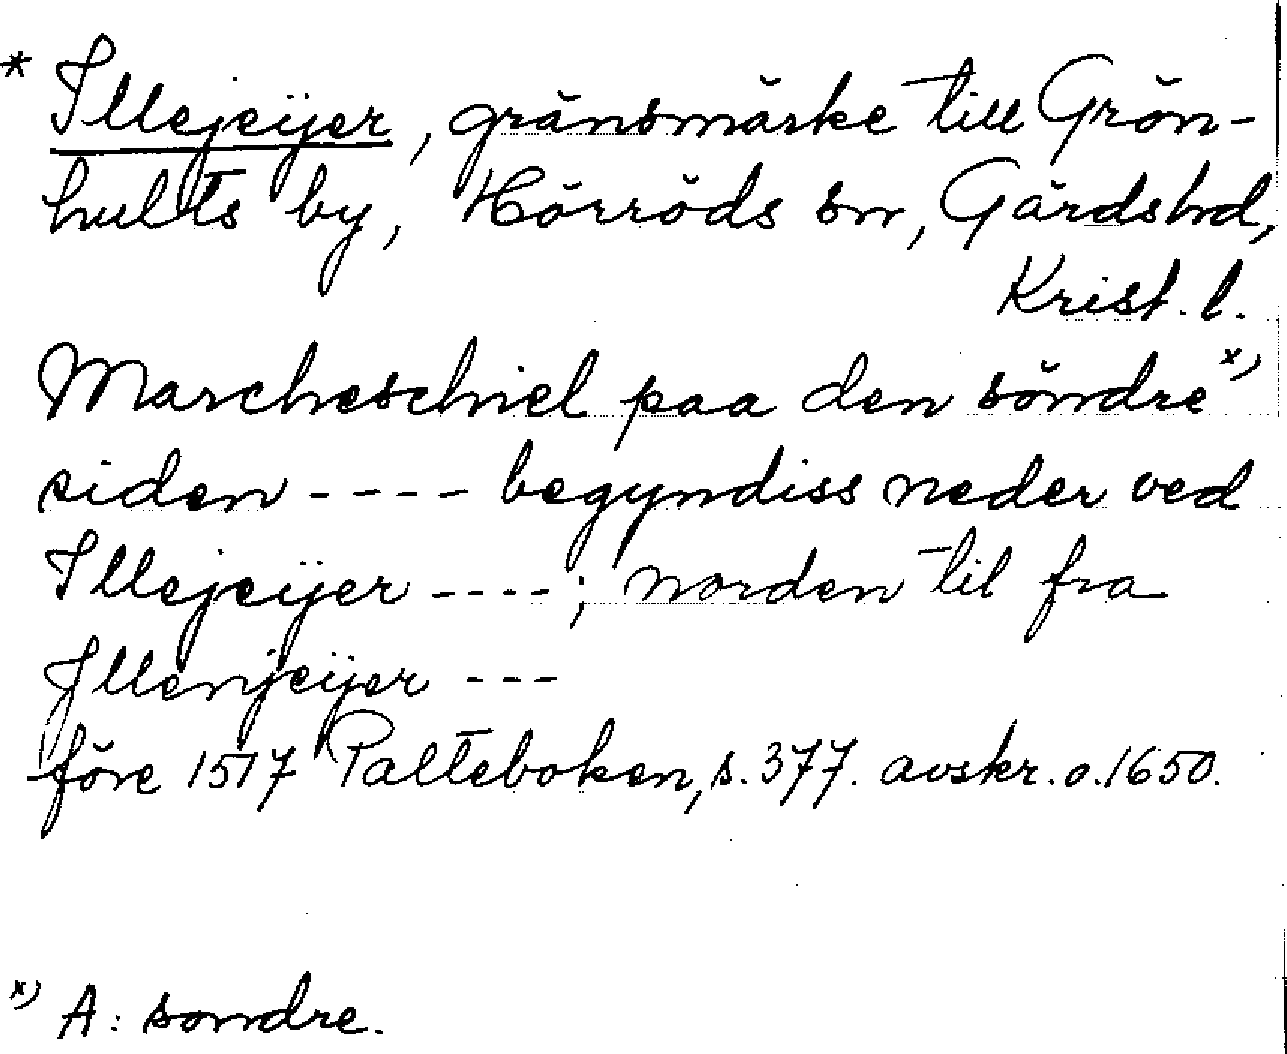 * Illejeÿer, gränsmärke till Grön-
hults by, Hörröds sn, Gärds hd,
Krist. l.
Marcheschiel paa den söndre x)
siden - - - - begyndiss neder ved
Illejeÿer - - - - ; norden til fra
Jllenjeÿer - - -
före 1517 Palteboken, s. 377. avskr. o. 1650.
x) A: sondre.